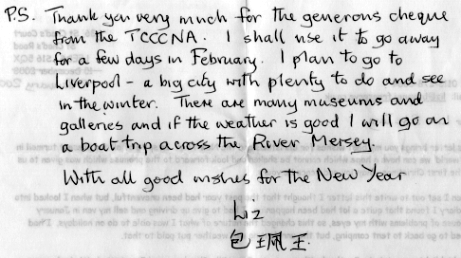 P.S. Thank you very much for the generous cheque
from the TCCCNA. I shall use it to go away
for a few days in February. I plan to go to
Liverpool - a big city with plenty to do and see
in the winter. There are many museums and
galleries and if the weather is good I will go on
a boat trip across the River Mersey.
With all good wishes for the New Year
Liz
包 王